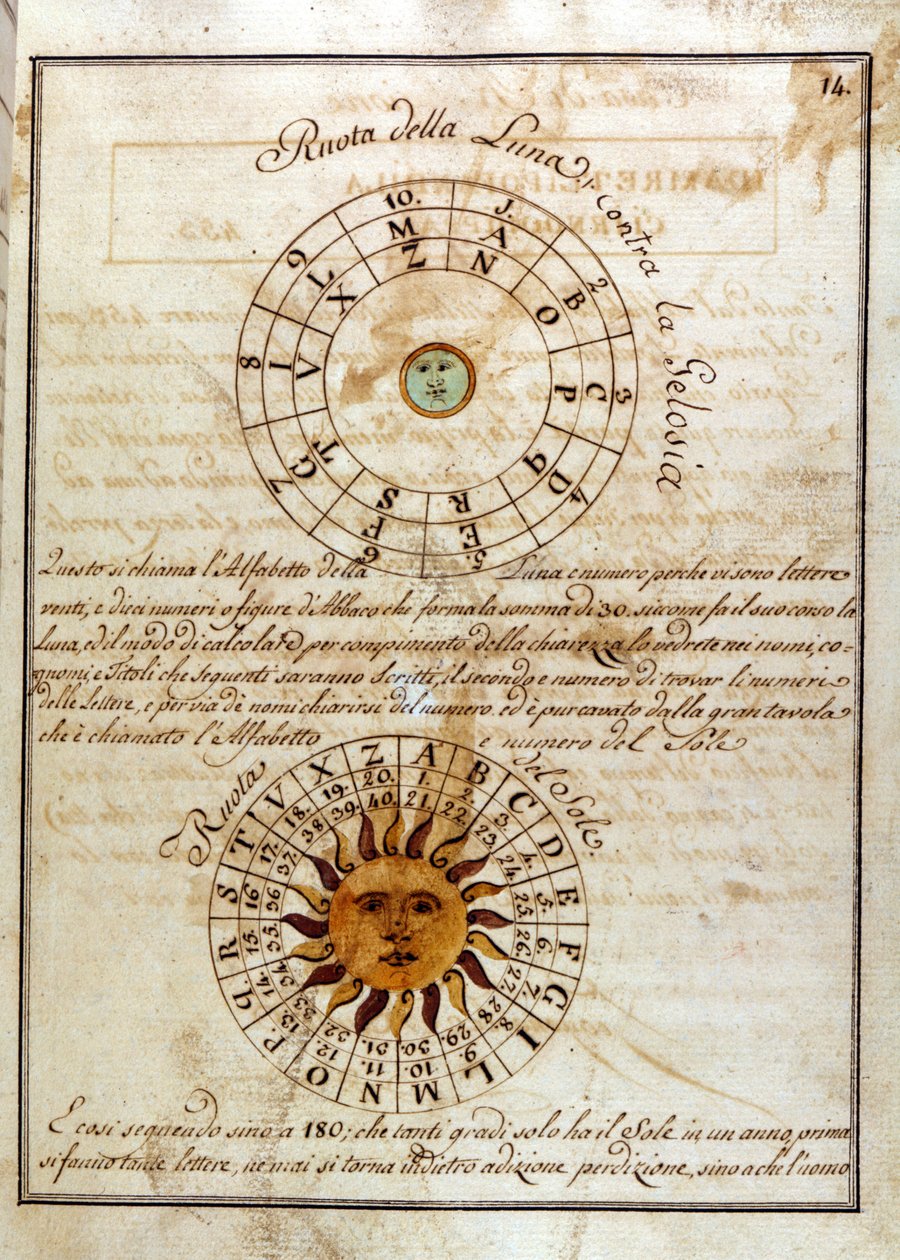 14.
Ruota della Luna, contra la Gelosia
10. 1. 2 3 4 5. 6 7 8 9
M A B C D E F G I L
Z N O P q R S T V X
Questo si chiama l'Alfabetto della Luna e numero perche vi sono lettere
venti, e dieci numeri o figure d'Abbaco che forma la somma di 30. sicome fa il suo corso la
Luna, ed il modo di calcolare per compimento della chiarezza lo vedrete nei nomi, co-
gnomi, e Titoli che seguenti saranno scritti, il secondo e numero di trovar li numeri
delle Lettere, e per via dè nomi chiarirsi del numero. ed è pur cavato dalla gran tavola
che è chiamato l'Alfabetto e numero del Sole
Ruota del Sole
A B C D E F G I L M N O P. q. R S T V X Z
1. 2. 3. 4. 5. 6. 7. 8. 9. 10. 11. 12. 13. 14. 15. 16 17. 18. 19. 20.
21. 22 23. 24. 25. 26. 27. 28. 29. 30. 31. 32. 33 34. 35. 36 37. 38 39. 40.
E cosi seguendo sino a 180; che tanti gradi solo ha il Sole in un anno, prima
si fanno tante lettere, ne mai si torna indietro adizione perdizione, sino a che l'uomo